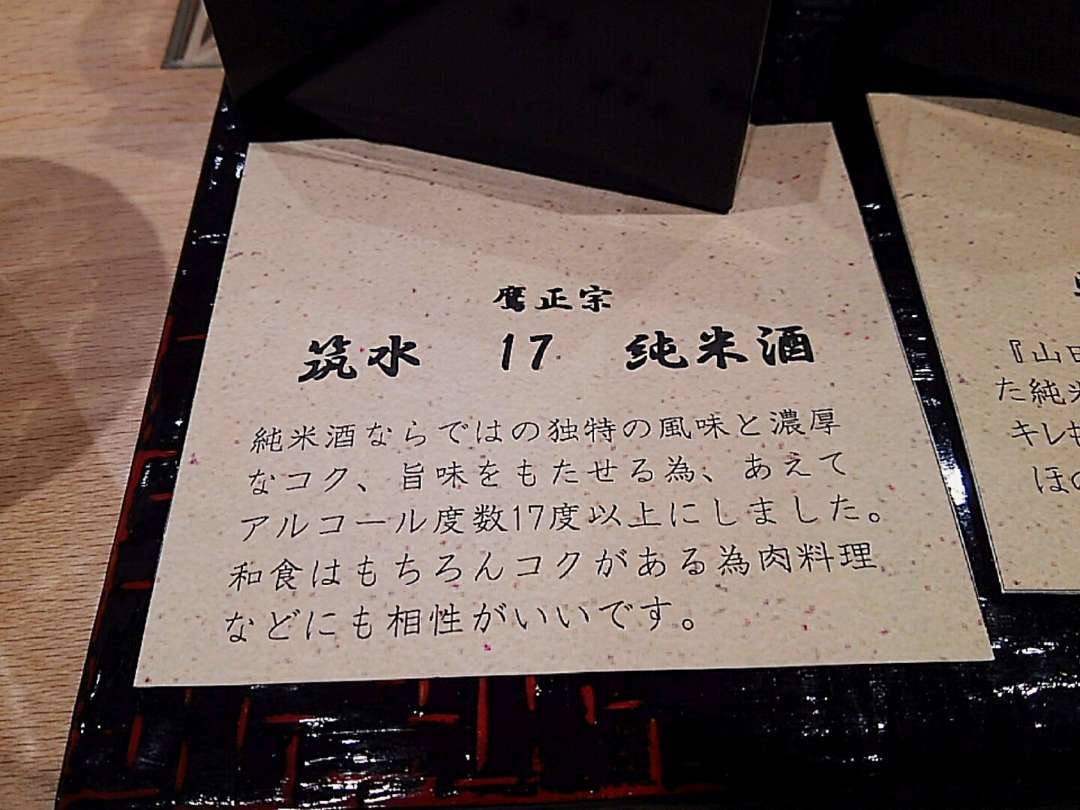 鷹正宗
筑水 17 純米酒
純米酒ならではの独特の風味と濃厚
なコク、旨味をもたせる為、あえて
アルコール度数17度以上にしました。
和食はもちろんコクがある為肉料理
などにも相性がいいです。
『山
た純米
キレ
ほの